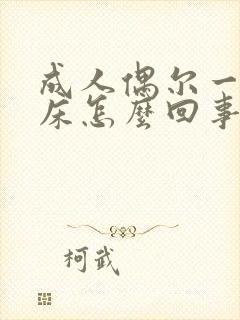 成人偶尔一
床怎麼回事
柯武